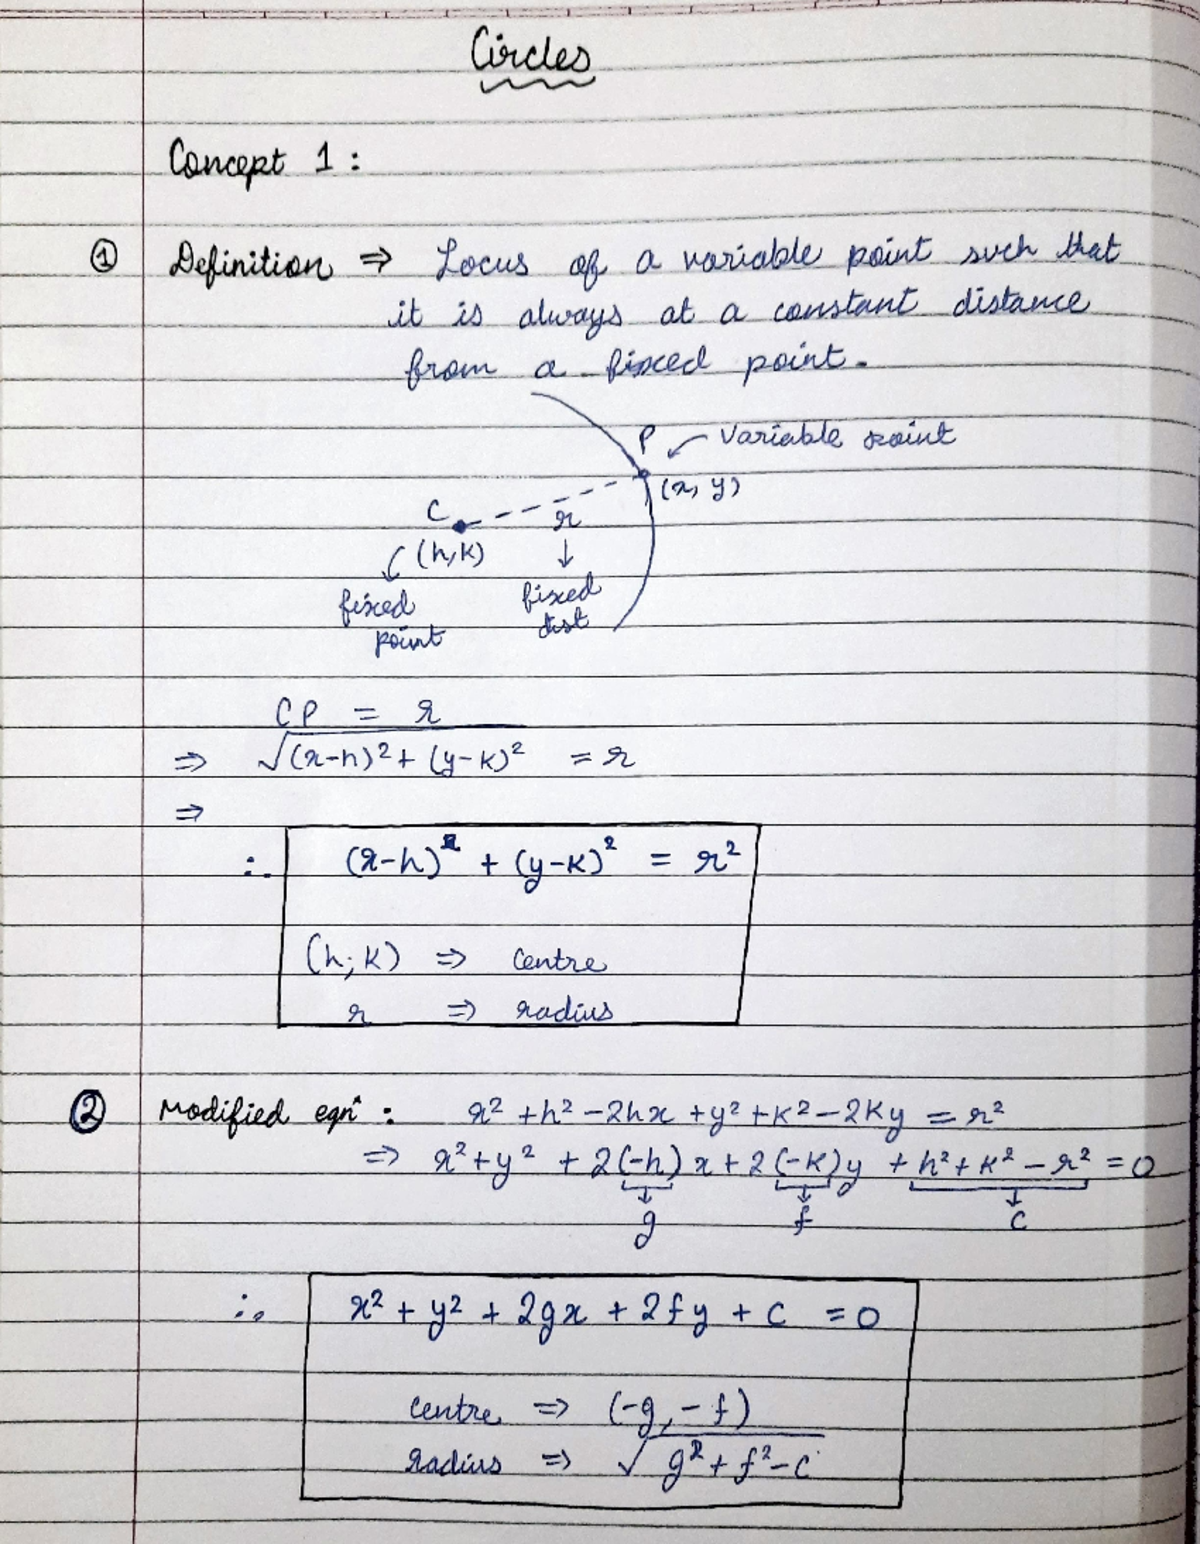 Circles
Concept 1 :
① Definition ⇒ Locus of a variable point such that
it is always at a constant distance
from a fixed point.
P ↙ Variable point
(x, y)
C
r
(h,k)
↙ ↓
fixed
point
fixed
dist
CP = r
⇒ √(x-h)² + (y-k)² = r
⇒
∴ (x-h)² + (y-k)² = r²
(h, k) ⇒ centre
r ⇒ radius
② Modified eqn : x² + h² - 2hx + y² + k² - 2ky = r²
⇒ x² + y² + 2(-h)x + 2(-k)y + h² + k² - r² = 0
↓ ↓ ↓
g f c
∴ x² + y² + 2gx + 2fy + c = 0
centre ⇒ (-g, -f)
radius ⇒ √g² + f² - c